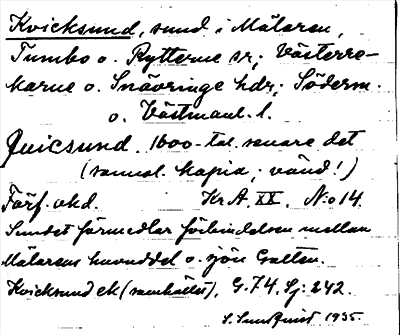 Kvicksund, sund i Mälaren,
Tumbo o. Rytterne sr; Västerre-
karne o. Snävringe hdr; Söderm.
o. Västmanl. l.
Quicsund 1600-tal. senare det
(samml. kopia, vänd!)
Färf. okd. Kr.A. XX. No 14.
Sundet förmedlar förbindelsen mellan
Mälarens huvuddel o. sjön Galten.
Kvicksund ek (samhälle), G. 74. Sj: 242.
S. Sundquist 1935.